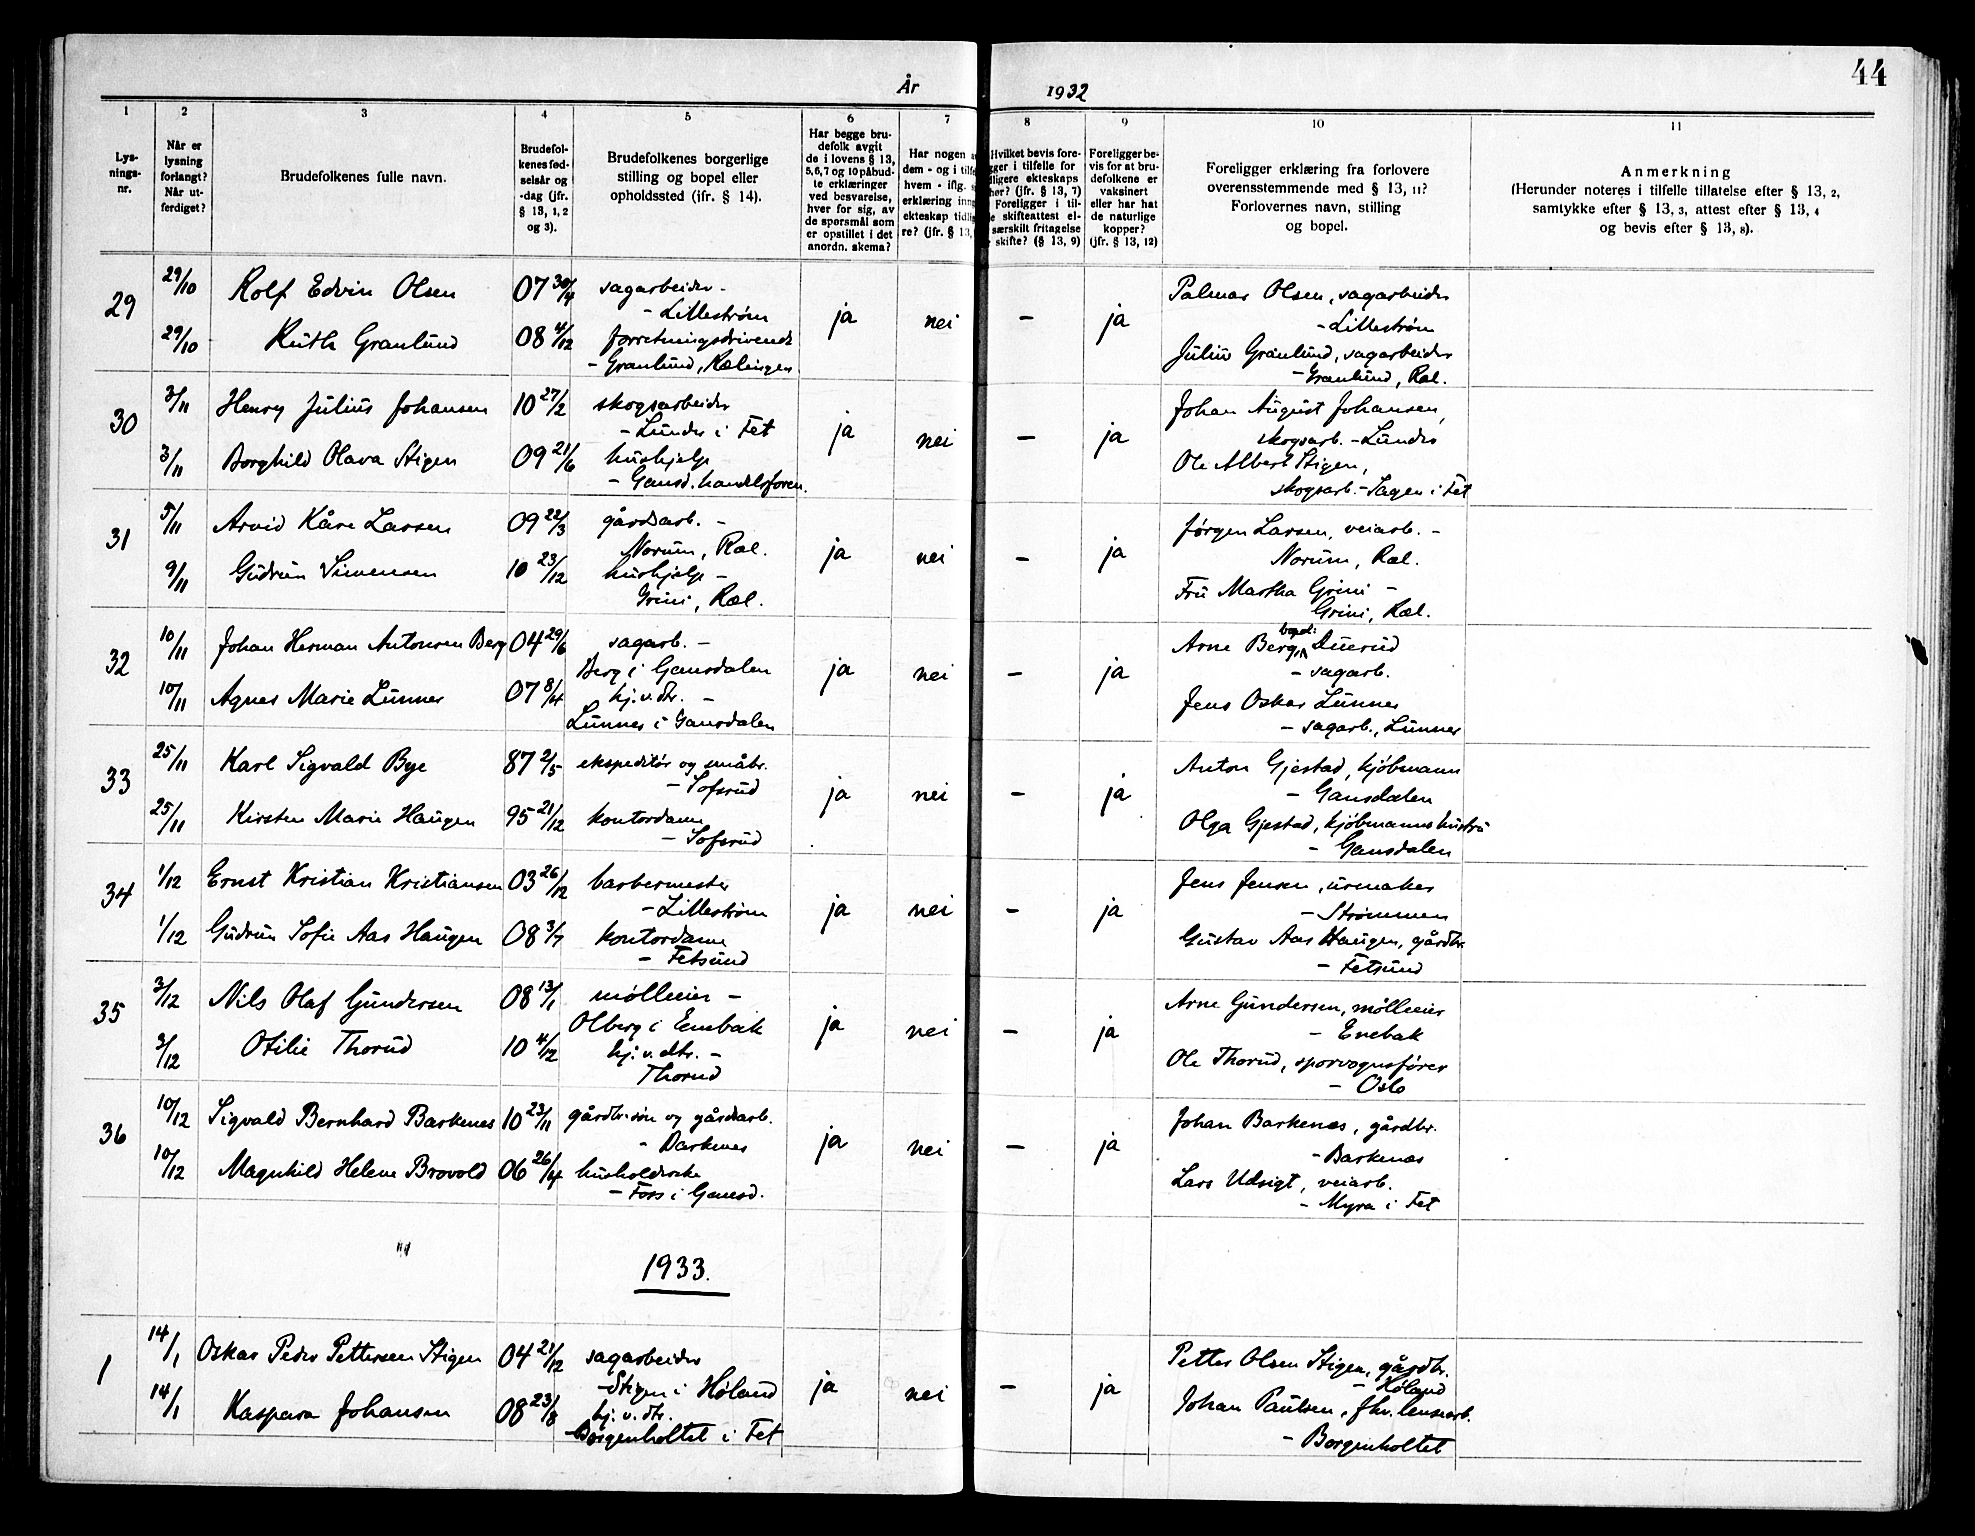 44
År 1932
1 2 3 4 5 6 7 8 9 10 11
Lys-
nings-
nr.
Når er
lysning
forlangt?
Når ut-
ferdiget?
Brudefolkenes fulle navn.
Brudefol-
kenes fød-
selsår og
-dag (jfr.
§ 13, 1, 2
og 3).
Brudefolkenes borgerlige
stilling og bopel eller
opholdssted (jfr. § 14).
Har begge bru-
defolk avgit
de i lovens § 13,
5, 6, 7 og 10 påbud-
te erklæringer
ved besvarelse,
hver for sig, av
de spørsmål som
er opstillet i det
anordn. skema?
Har nogen
dem - og i
hvem - iflg.
erklæring
ekteskap
re? (jfr. § 13,
Hvilket bevis fore-
ger i tilfelle for
ligere ekteskaps
her? (jfr. § 13, 7)
Foreligger i til-
e skifteattest el-
særskilt fritagelse
skifte? (§ 13, 9)
Foreligger be-
vis for at bru-
defolkene er
vaksinert
eller har hat
de naturlige
kopper?
(jfr. § 13, 12)
Foreligger erklæring fra forlovere
overensstemmende med § 13, 11?
Forlovernes navn, stilling
og bopel.
Anmerkning
(Herunder noteres i tilfelle tillatelse efter § 13, 2,
samtykke efter § 13, 3, attest efter § 13, 4
og bevis efter § 13, 8).
29 29/10 Rolf Edvin Olsen 07 30/4 sagarbeider - ja nei - ja Palmar Olsen, sagarbeider
- Lilleström - Lilleström
29/10 Ruth Granlund 08 4/12 forretningsdrivende Julius Granlund, sagarbeider
- Granlund, Rælingen - Granlund, Ræl.
30 3/11 Henry Julius Johansen 10 27/2 skogsarbeider ja nei - ja Johan August Johansen,
- Lunder i Fet skogsarb. - Lunder
3/11 Borghild Olava Stigen 09 21/6 hushjelp Ole Albert Stigen,
- Gansd. handelsforen. skogsarb. - Sagen i Fet
31 5/11 Arvid Kåre Larsen 09 22/3 gårdsarb. - ja nei - ja Jørgen Larsen, veiarb. -
Norum, Ræl. Norum, Ræl.
9/11 Gudrun Simensen 10 23/12 hushjelp - Fru Martha Grini -
Grini, Ræl. Grini, Ræl.
32 10/11 Johan Herman Antonsen Berg 04 29/6 sagarb. - ja nei - ja Arne Berg, bopel: Tuerud
Berg i Gansdalen - sagarb.
10/11 Agnes Marie Lunner 07 8/4 hj.v.dtr. - Jens Oskar Lunner
Lunner i Gansdalen - sagarb., Lunner
33 25/11 Karl Sigvald Bye 87 2/5 ekspeditör og småbr. ja nei - ja Anton Gjestad, kjöbmann
- Sofsrud - Gansdalen
25/11 Kirsten Marie Haugen 95 21/12 kontordame Olga Gjestad, kjöbmannshustru
- Sofsrud - Gansdalen
34 1/12 Ernst Kristian Kristiansen 03 26/12 barbermester ja nei - ja Jens Jensen, urmaker
- Lilleström - Strømmen
1/12 Gudrun Sofie Aas Haugen 08 3/7 kontordame Gustav Aas Haugen, gårdbr.
- Fetsund - Fetsund
35 3/12 Nils Olaf Gundersen 08 13/1 mølleeier - ja nei - ja Arne Gundersen, mölleeier
Olberg i Enebak - Enebak
3/12 Otilie Thorud 10 4/12 hj.v.dtr. - Ole Thorud, sporvognsfører
Thorud - Oslo
36 10/12 Sigvald Bernhard Barkenes 10 23/11 gårdbr.søn og gårdsarb. ja nei - ja Johan Barkenæs, gårdbr.
- Barkenes - Barkenæs
10/12 Magnhild Helene Brovold 06 26/4 husholderske Lars Udsigt, veiarb.
- Foss i Gansd. - Myra i Fet
1933.
1 14/1 Oskar Peder Pettersen Stigen 04 21/12 sagarbeider ja nei - ja Petter Olsen Stigen, gårdbr.
- Stigen i Høland - Høland
14/1 Kaspara Johansen 08 23/8 hj.v.dtr. Johan Paulsen, fhv. lensearb.
- Borgenholtet i Fet - Borgenholtet